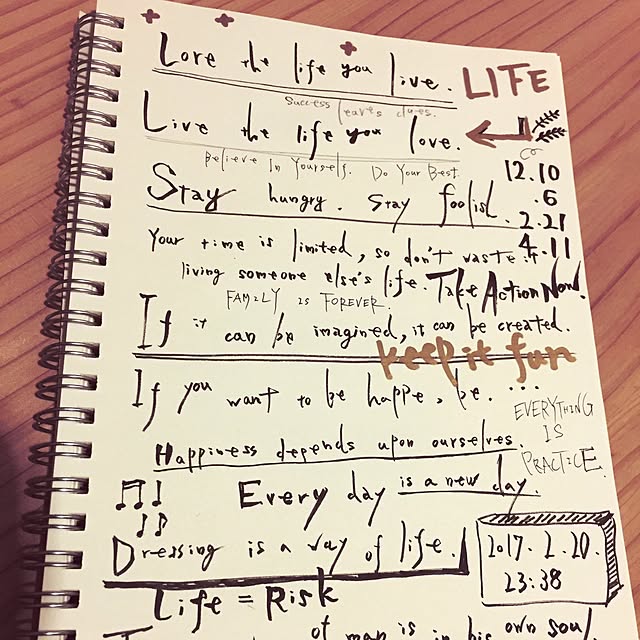 Love the life you live.
LIFE
Success leaves clues.
Live the life you love.
Believe In Yourself. Do Your Best.
12.10
.6
Stay hungry. Stay foolish.
2.21
4.11
Your time is limited, so don't waste it
living someone else's life. Take Action Now.
FAMILY is FOREVER.
If it can be imagined, it can be created.
keep it fun
If you want to be happe, be. ...
EVERYTHING
IS
PRACTICE.
Happiness depends upon ourselves.
Every day is a new day.
Dressing is a way of life.
2017. 2. 20.
23:38
Life = Risk
of man is in his own soul.